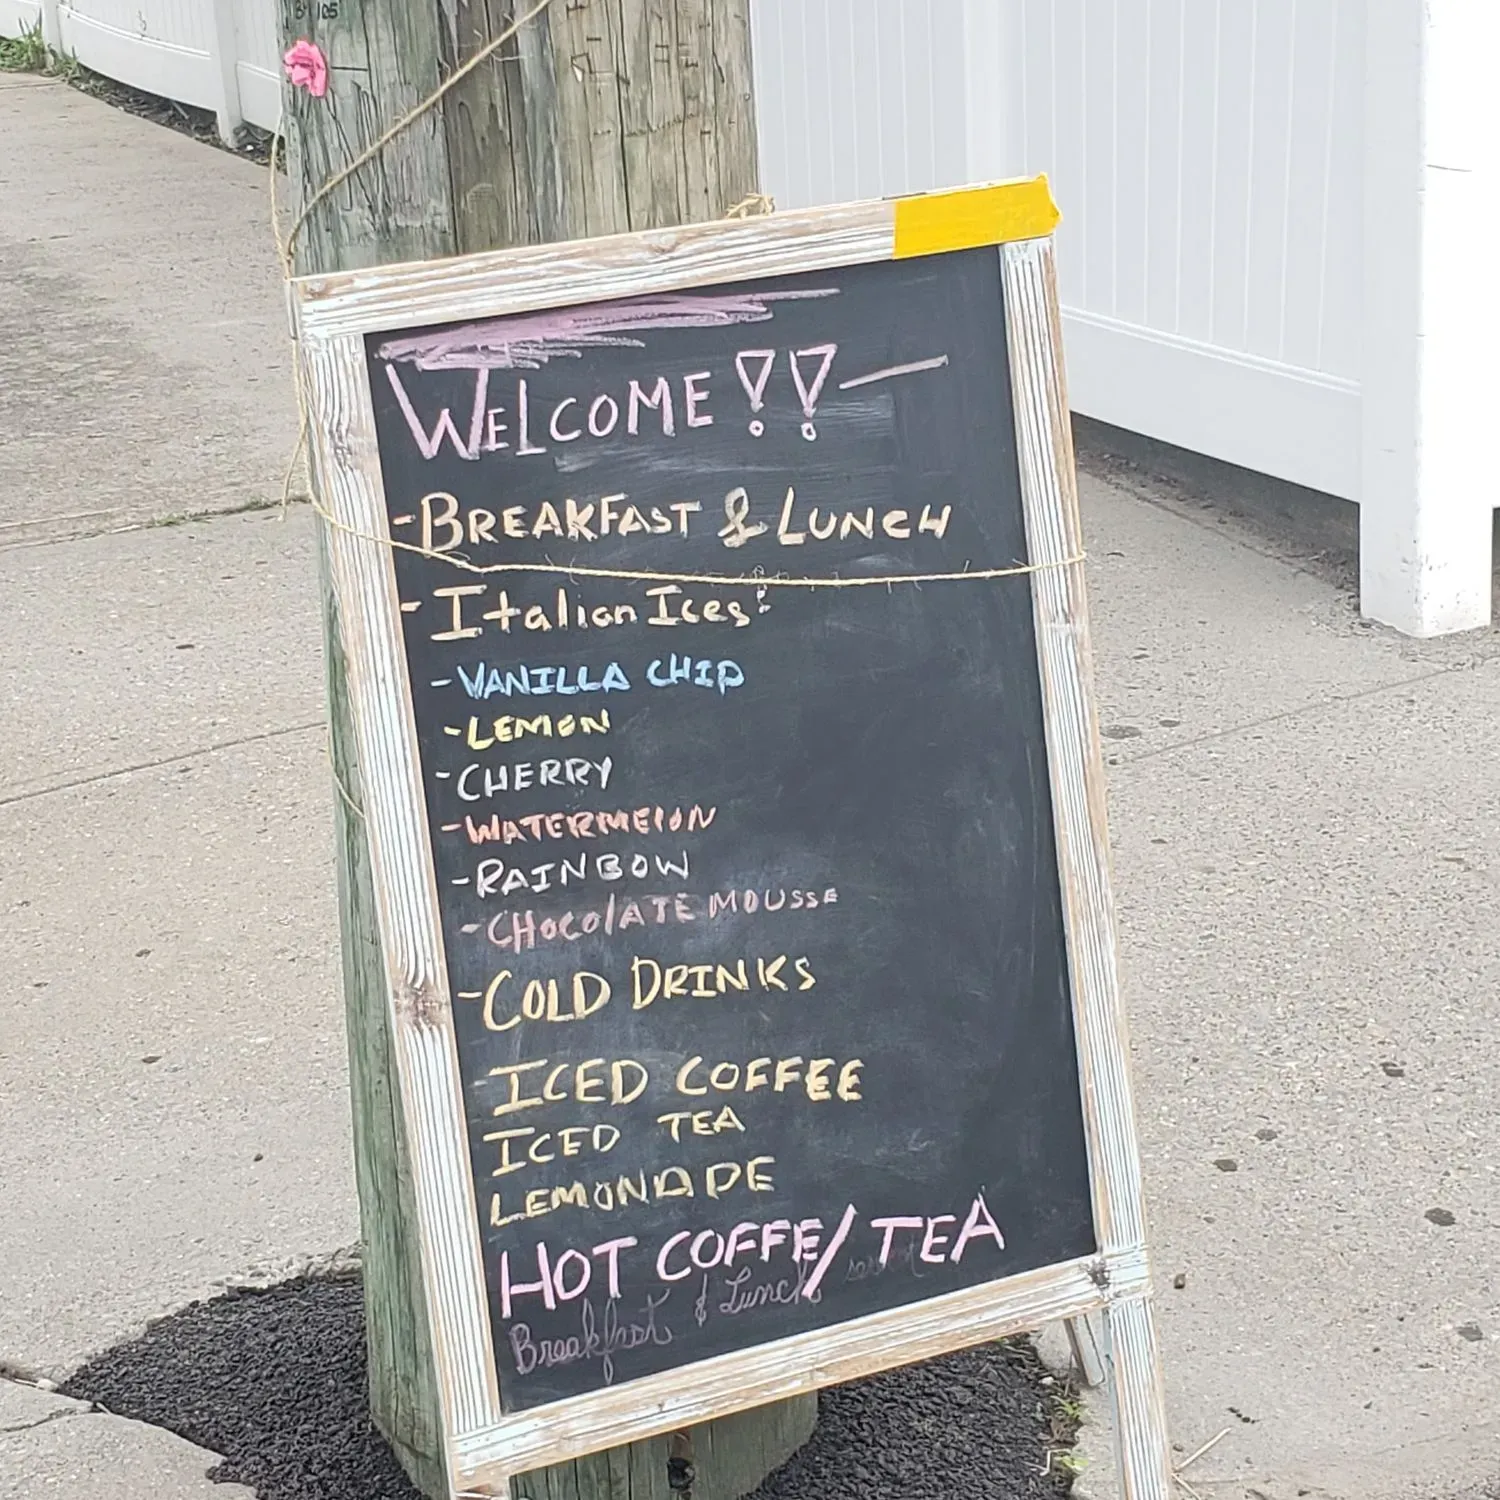 WELCOME!!
- BREAKFAST & LUNCH
- Italian Ices:
- VANILLA CHIP
- LEMON
- CHERRY
- WATERMELON
- RAINBOW
- CHOCOLATE MOUSSE
- COLD DRINKS
ICED COFFEE
ICED TEA
LEMONADE
HOT COFFE/TEA
Breakfast & Lunch